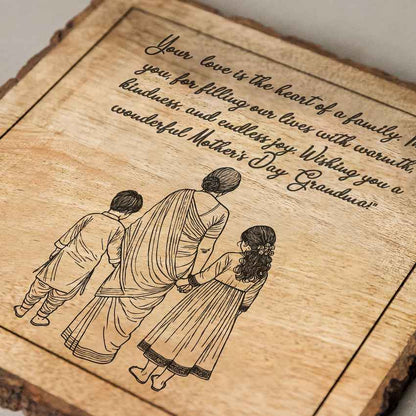 Your love is the heart of a family
you for filling our lives with warmth,
kindness, and endless joy. Wishing you a
wonderful Mother's Day Grandma!"